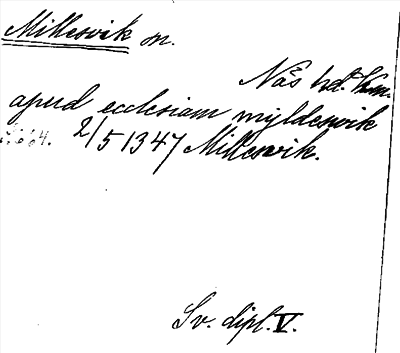 Millesvik sn.
Näs hd. Vrm.
apud ecclesiam myldeswik
s. 664. 2/5 1347 Millesvik.
Sv. dipl. V.